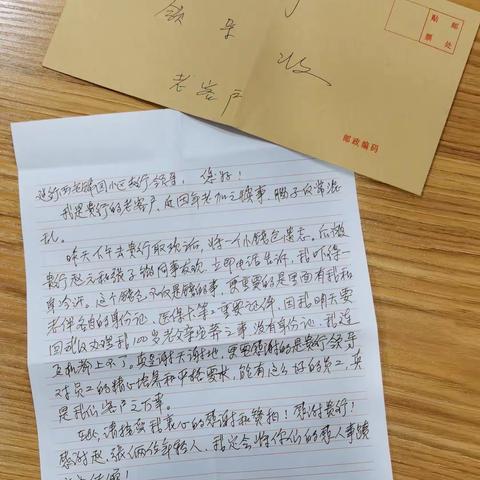 领导
收
老客户
贴邮
票处
邮政编码
建行西老胡同小区支行领导： 您好！
我是贵行的老客户，因年老加之琐事，脑子反常混
乱。
昨天下午去贵行取款后，将一个小钱包遗忘。后被
贵行赵元和张子的同事发现，立即电话告诉，我吓得一
身冷汗。这个钱包不仅是钱的事，更重要的是里面有我和
老伴各自的身份证、医保卡等重要证件，因我明天要
回武汉办理我100岁老父亲安葬之事，没有身份证，我连
飞机都上不了。真是谢天谢地，更要感谢的是贵行领导
对员工的精心培养和严格要求，能有这么好的员工，真
是我们客户之万幸。
在此，请接受我衷心的感谢和赞扬！感谢贵行！
感谢赵、张俩位年轻人，我定会将你们的感人事蹟